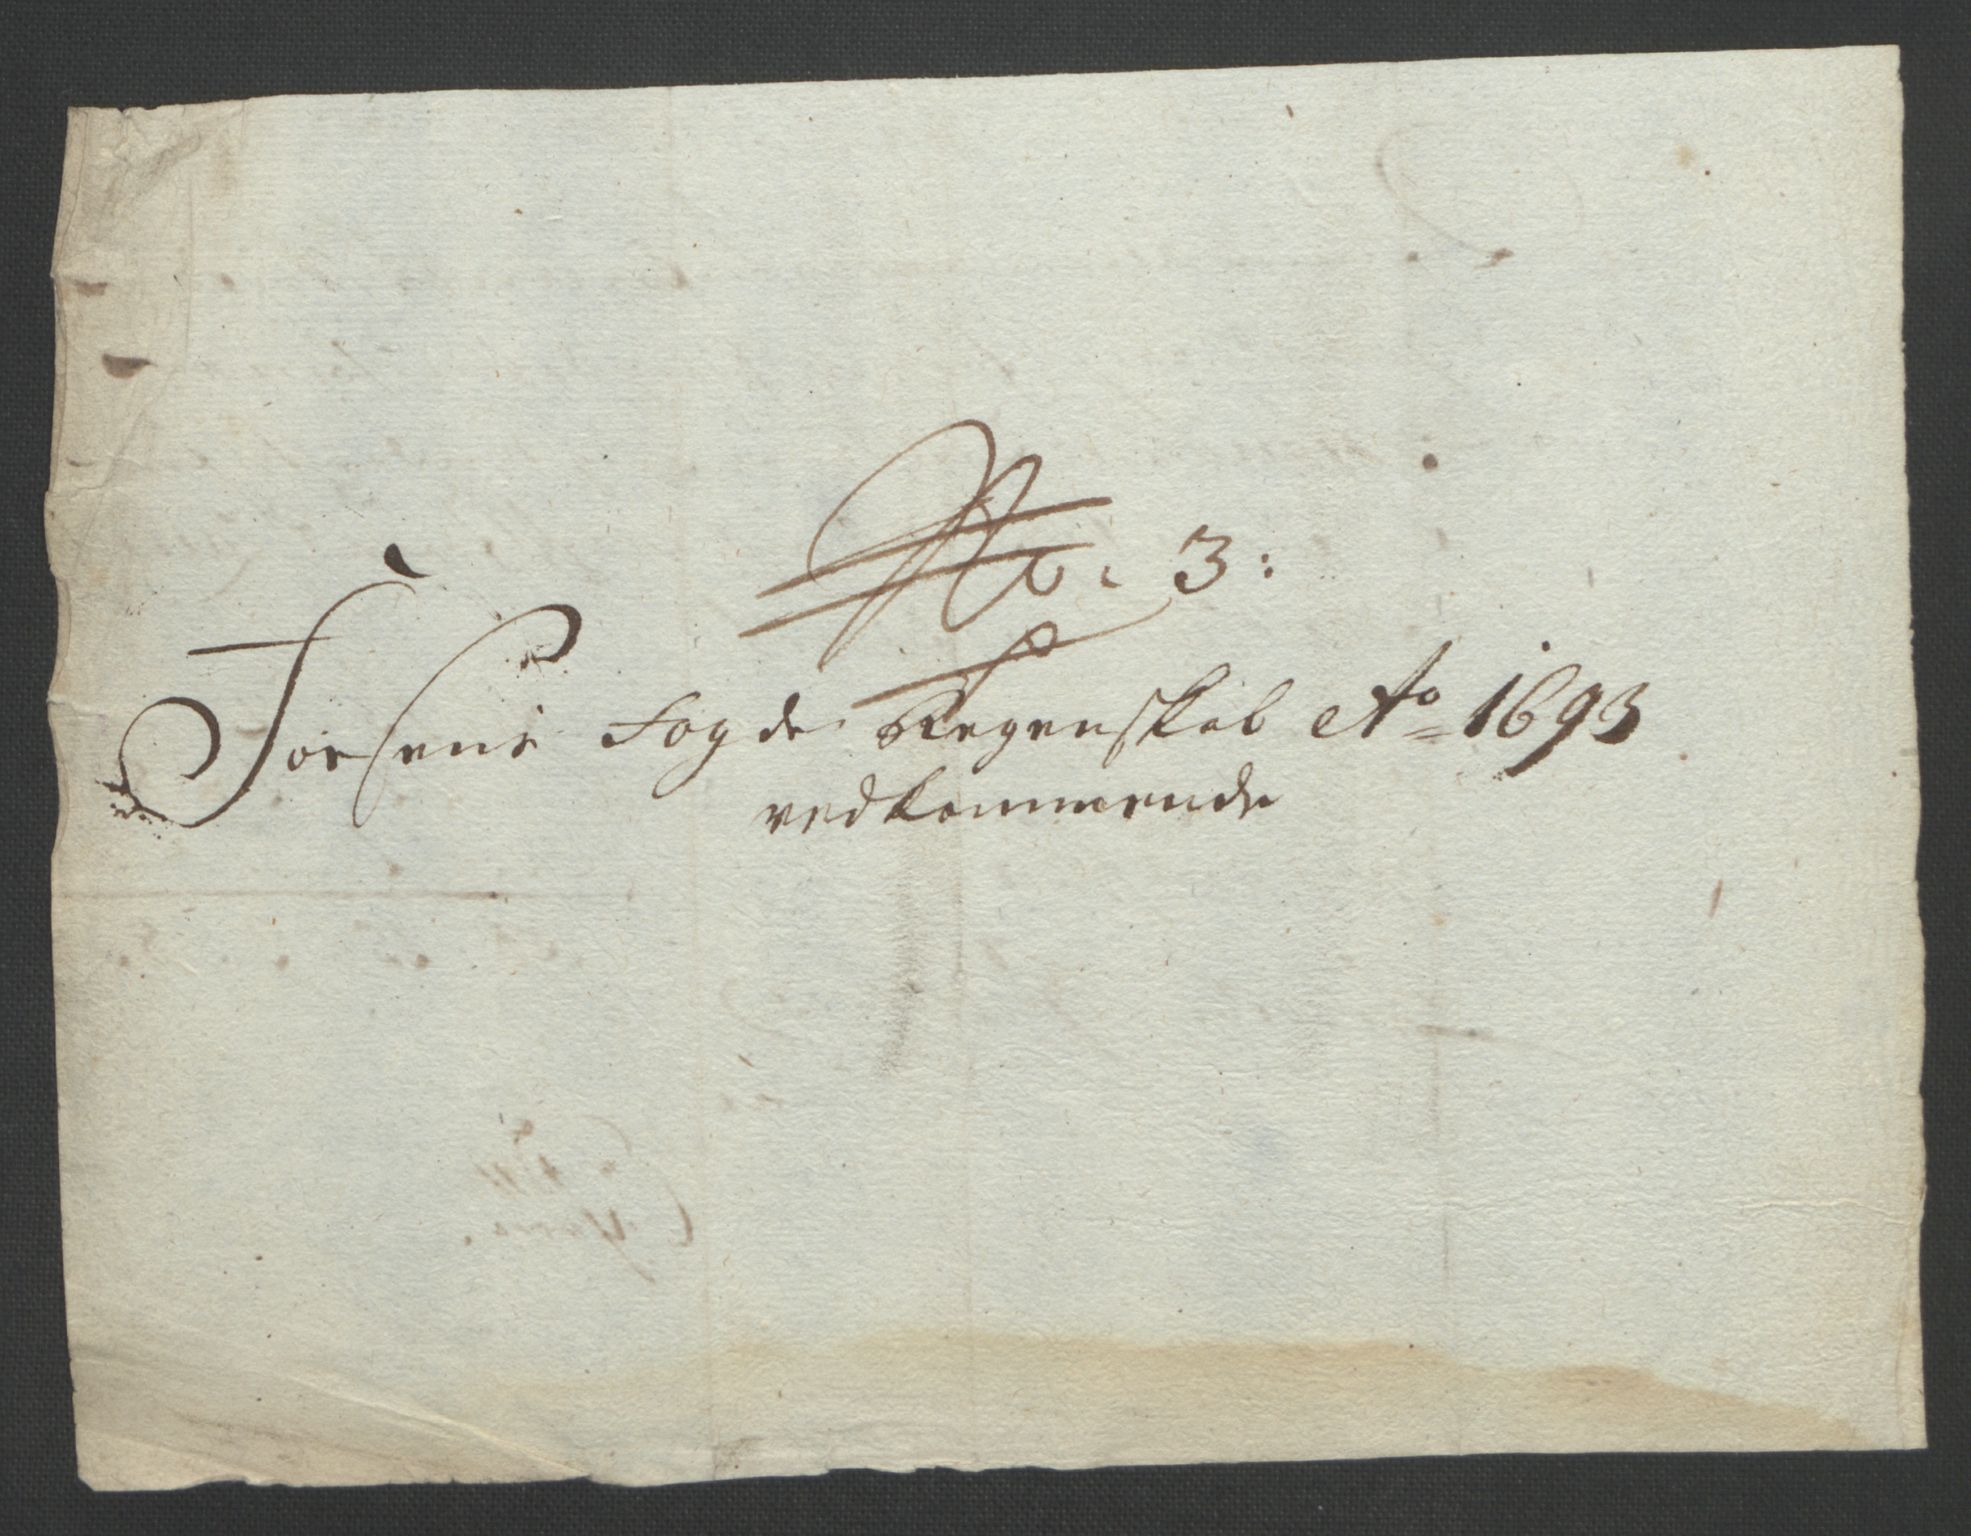 No: 3:
Foesens Fogde Regenskab Ao 1693
vedkommende